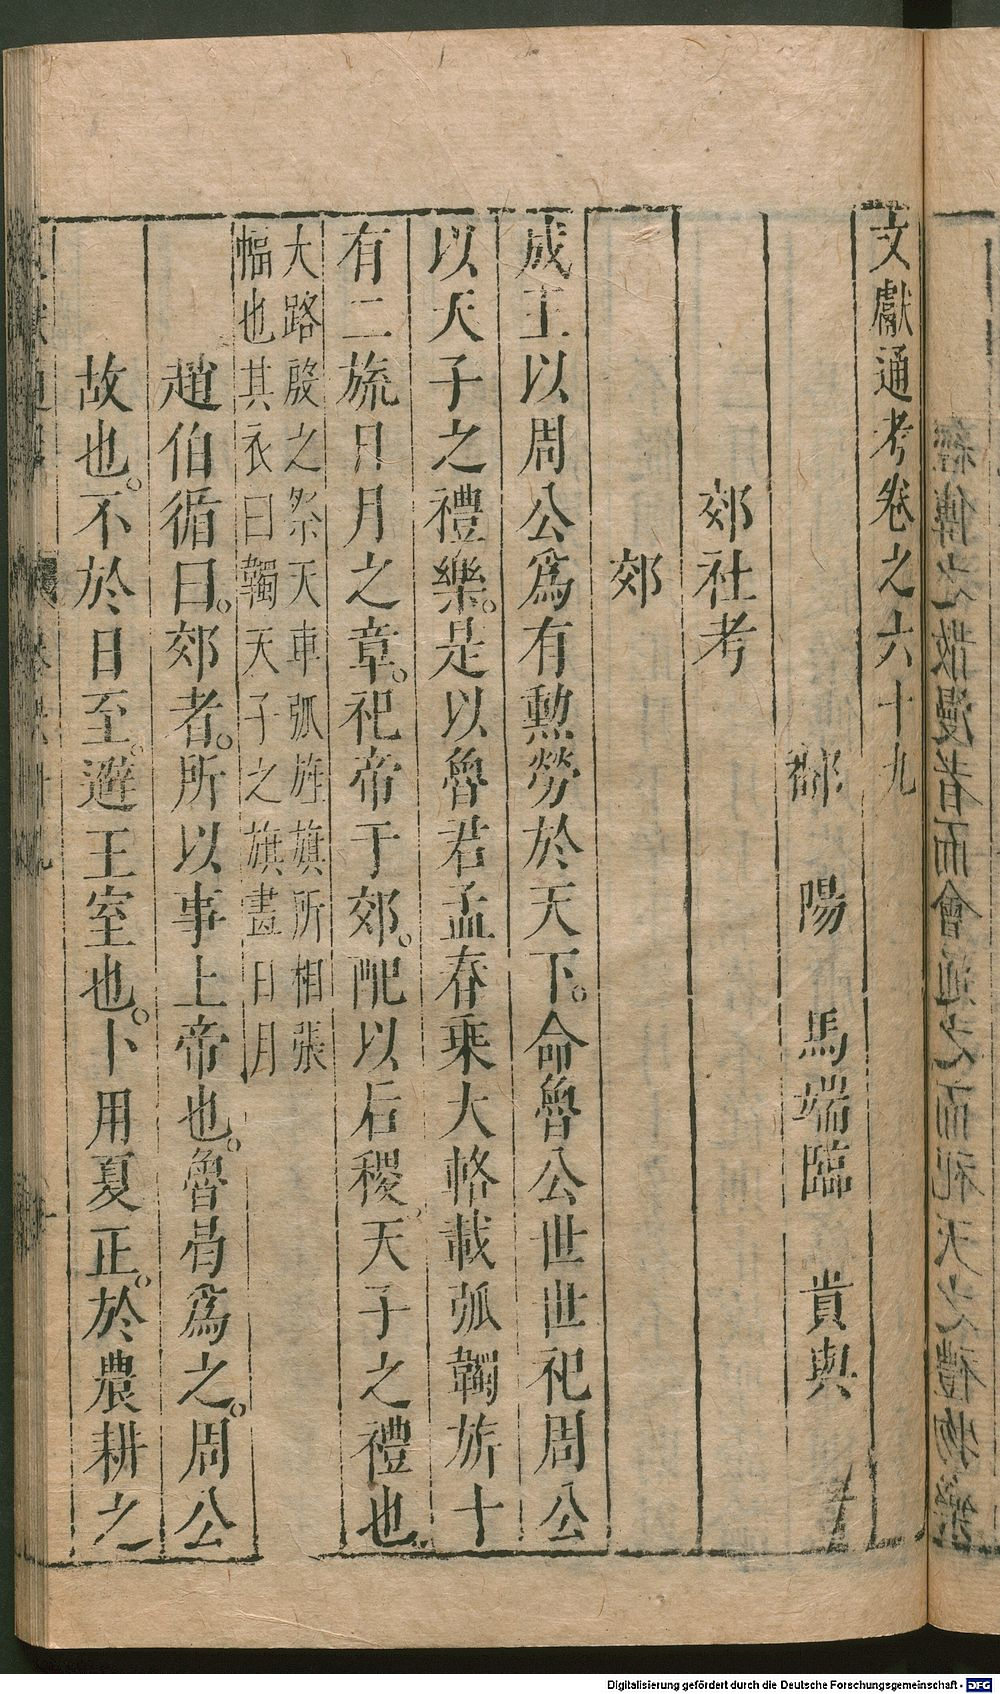 文獻通考卷之六十九
鄱陽馬端臨貴與
郊社考
郊
成王以周公爲有勲勞於天下。命魯公世世祀周公
以天子之禮樂。是以魯君孟春乘大輅載弧韣旂十
有二旒日月之章。祀帝于郊。配以后稷。天子之禮也
大路殷之祭天車弧旌旗所相張
幅也其衣曰韣天子之旗畫日月
趙伯循曰。郊者。所以事上帝也。魯曷爲之。周公
故也。不於日至。避王室也。卜用夏正。於農耕之
Digitalisierung gefördert durch die Deutsche Forschungsgemeinschaft - DFG